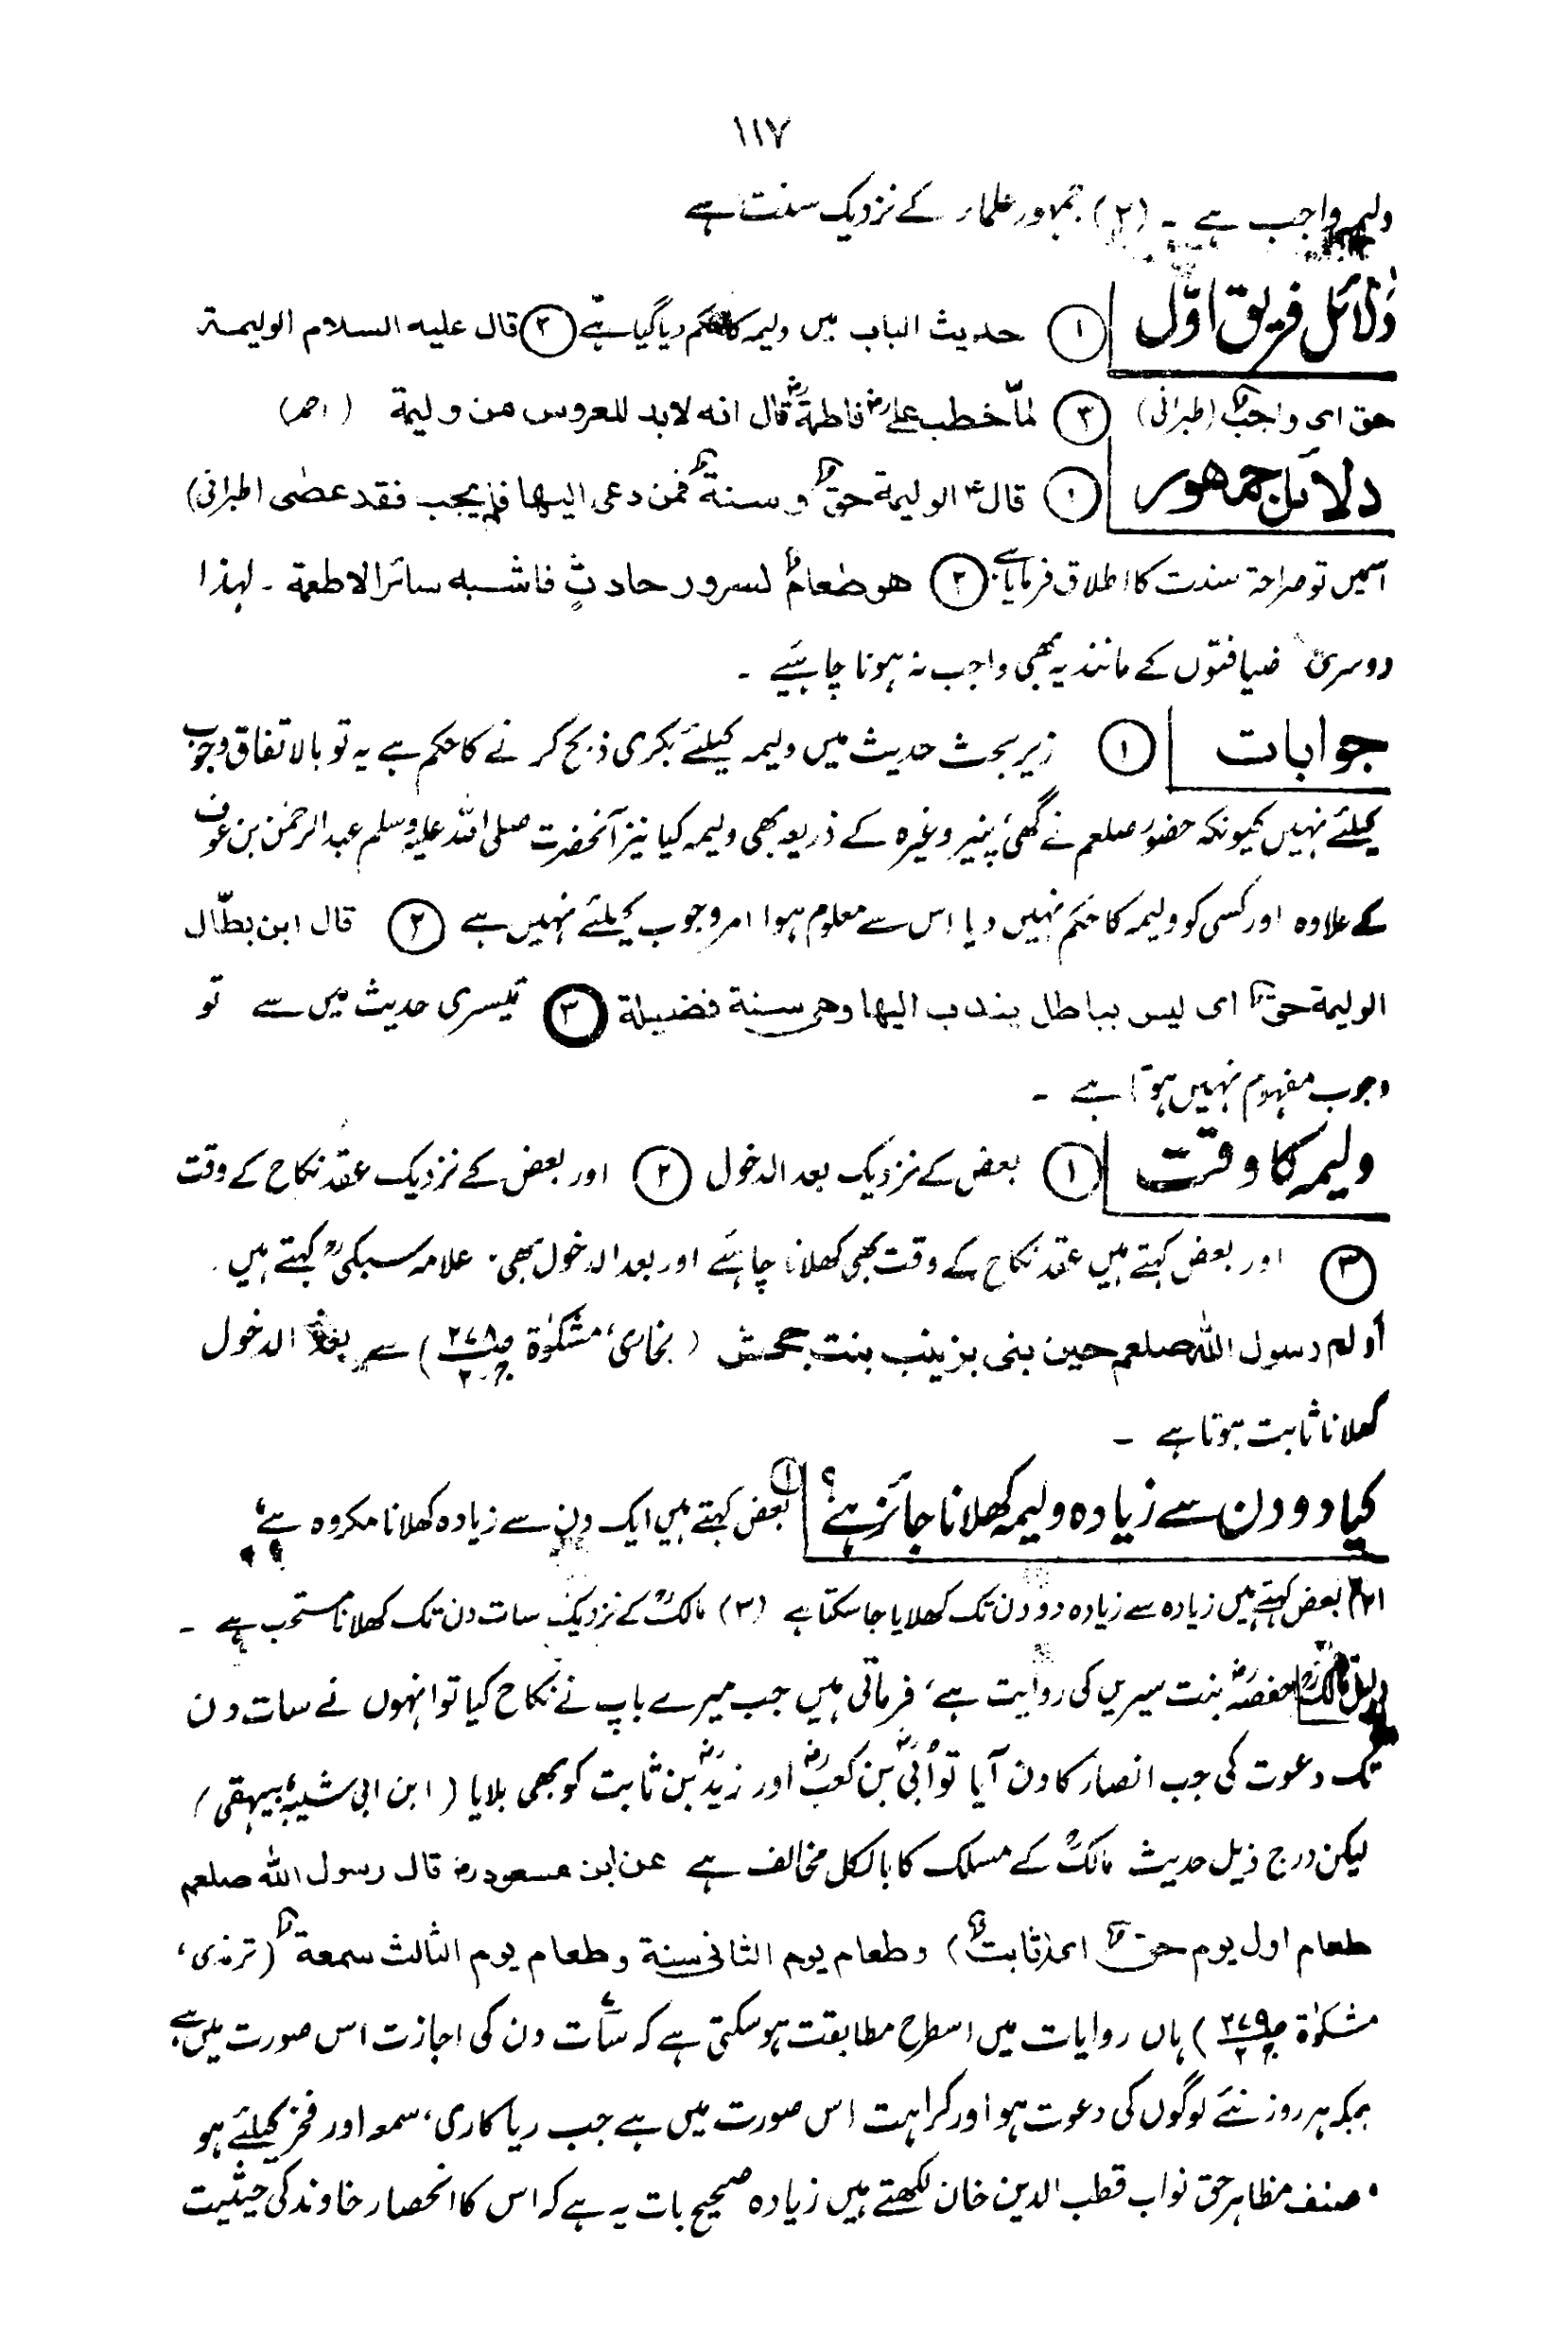 ١١٧
ولیمہ واجب ہے ۔ (٢) جمہور علماء کے نزدیک سنت ہے
دلائل فریق اوّل ① حدیث الباب میں ولیمہ کا حکم دیا گیا ہے ② قال علیه السلام الولیمة
حق ای واجبٌ (طبرانی) ③ لمّا خطب علیؓ فاطمةؓ قال انه لابد للعروس من ولیمة (احمد)
دلائل جمہور ① قالؑ الولیمة حقٌ وسنةٌ فمن دعی الیها فلم یجب فقد عصٰی (طبرانی)
اسمیں تو صراحۃ سنت کا اطلاق فرمایا ہے ② هو طعامٌ لسرور حادثٍ فاشبه سائر الاطعمة ۔ لہذا
دوسری ضیافتوں کے مانند یہ بھی واجب نہ ہونا چاہئیے ۔
جوابات ① زیر بحث حدیث میں ولیمہ کیلئے بکری ذبح کرنے کا حکم ہے یہ تو بالاتفاق وجوب
کیلئے نہیں کیونکہ حضورؐ صلعم نے گھی، پنیر وغیرہ کے ذریعہ بھی ولیمہ کیا نیز آنحضرت صلی اللہ علیہ وسلم عبدالرحمٰن بن عوف
کے علاوہ اور کسی کو ولیمہ کا حکم نہیں دیا اس سے معلوم ہوا امر وجوب کیلئے نہیں ہے ② قال ابن بطّال
الولیمة حقٌ ای لیس بباطل یندب الیها وهی سنة فضیلة ③ تیسری حدیث میں سے تو
وجوب مفہوم نہیں ہوتا ہے ۔
ولیمہ کا وقت ① بعض کے نزدیک بعد الدخول ② اور بعض کے نزدیک عقد نکاح کے وقت
③ اور بعض کہتے ہیں عقد نکاح کے وقت بھی کھلانا چاہئے اور بعد الدخول بھی ۔ علامہ سبکیؒ کہتے ہیں ۔
أولم رسول اللہ صلعم حین بنی بزینب بنت جحش (بخاری، مشکوٰۃ ص٢٧٨ ج٢) سے بعد الدخول
کھلانا ثابت ہوتا ہے ۔
کیا دو دن سے زیادہ ولیمہ کھلانا جائز ہے؟ ① بعض کہتے ہیں ایک دن سے زیادہ کھلانا مکروہ ہے،
(٢) بعض کہتے ہیں زیادہ سے زیادہ دو دن تک کھلایا جا سکتا ہے (٣) مالکؒ کے نزدیک سات دن تک کھلانا مستحب ہے ۔
دلیل مالکؒ حفصہؓ بنت سیرین کی روایت ہے، فرماتی ہیں جب میرے باپ نے نکاح کیا تو انہوں نے سات دن
تک دعوت کی جب انصار کا دن آیا تو اُبیؓ بن کعبؓ اور زیدؓ بن ثابت کو بھی بلایا (ابن ابی شیبہ، بیہقی)
لیکن درج ذیل حدیث مالکؒ کے مسلک کا بالکل مخالف ہے عن ابن مسعودؓ قال رسول اللہ صلعم
طعام اول یوم حقٌ (ای ثابتٌ) وطعام یوم الثانی سنة وطعام یوم الثالث سمعةٌ (ترمذی،
مشکوٰۃ ص٢٧٩ ج٢) ہاں روایات میں اسطرح مطابقت ہو سکتی ہے کہ سات دن کی اجازت اس صورت میں ہے
جبکہ ہر روز نئے لوگوں کی دعوت ہو اور کراہت اس صورت میں ہے جب ریاکاری، سمعہ اور فخر کیلئے ہو
مصنف مظاہر حق نواب قطب الدین خان لکھتے ہیں زیادہ صحیح بات یہ ہے کہ اس کا انحصار خاوند کی حیثیت